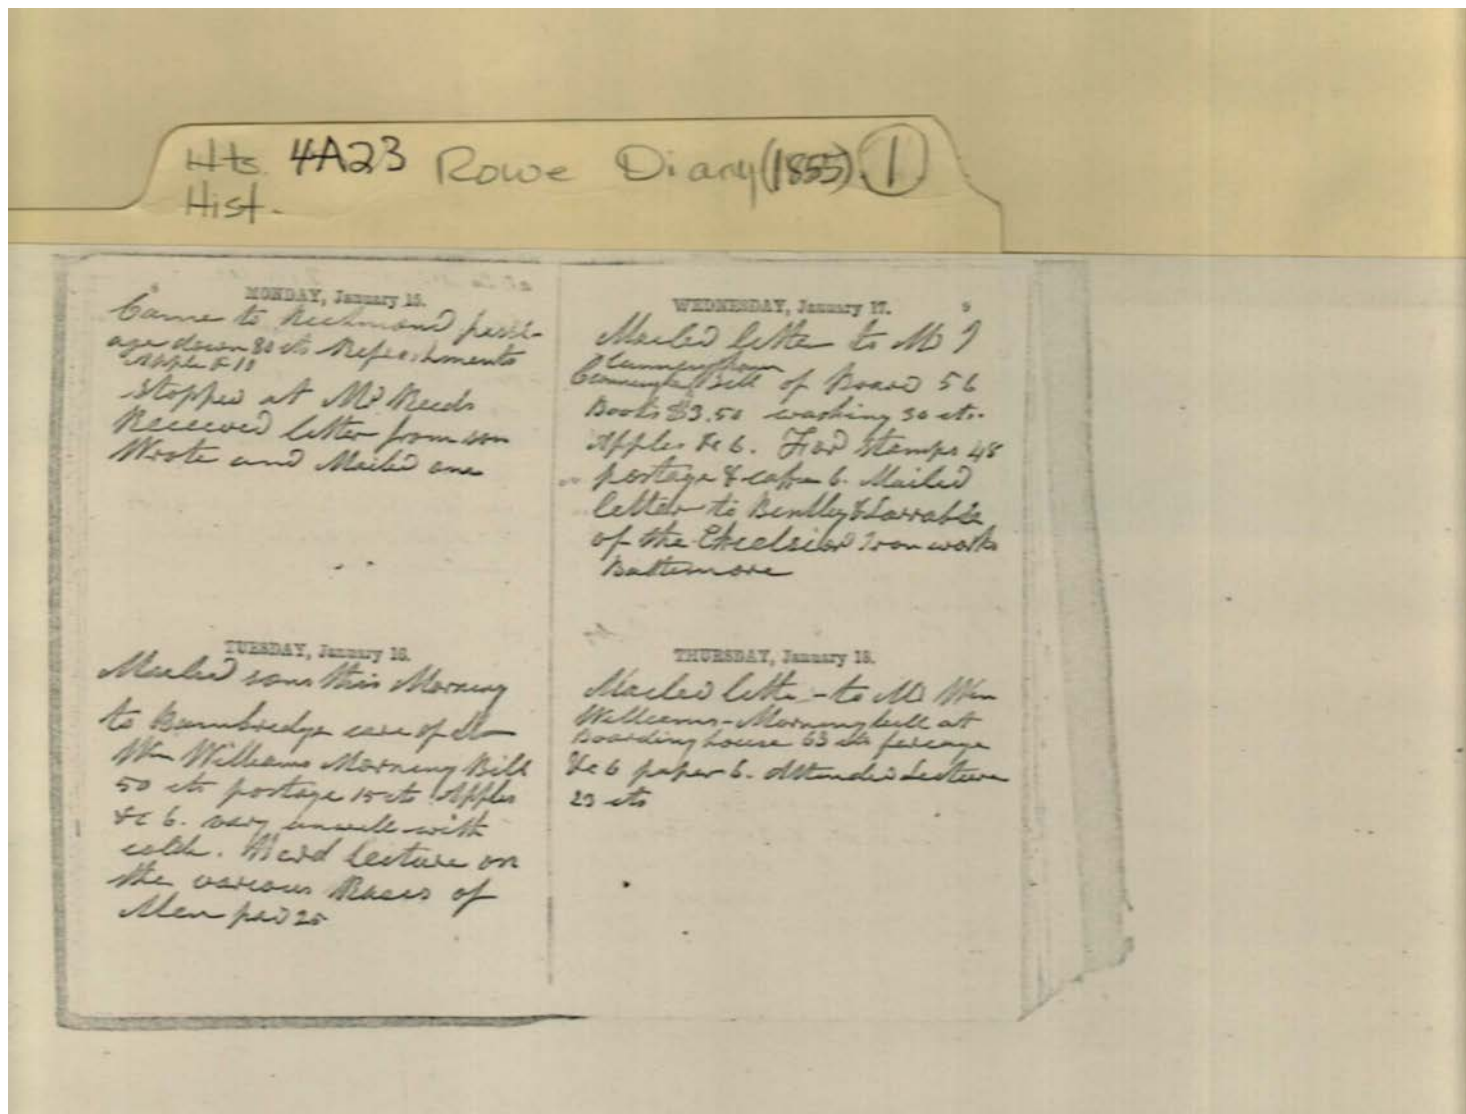 Hts. 4A23 Rowe Diary (1855). 1
Hist.
MONDAY, January 15.
Came to Richmond pass-
age down 80 cts Refreshments
Apple & 10
Stopped at Mr Reeds
Received letter from son
Wrote and Mailed one
TUESDAY, January 16.
Mailed sons this Morning
to Bainbridge care of
Wm Williams Morning Bill
50 cts postage 15 cts Apples
&c 6. vary unwell with
colde. Heard lecture on
the various Races of
Men paid 25
WEDNESDAY, January 17. 9
Mailed letter to M J
Cunningham
Bill of Board 56
Boots $3.50 washing 30 cts.
Apples &c 6. For Stamps 48
postage & 6. Mailed
letter to Bentley & Larrabee
of the Excelsior Iron works
Baltemore
THURSDAY, January 18.
Mailed lette to Mr Wm
Williams - Morning bill at
Boarding house 63 cts
&c 6 paper 6. Attended Lecture
25 cts